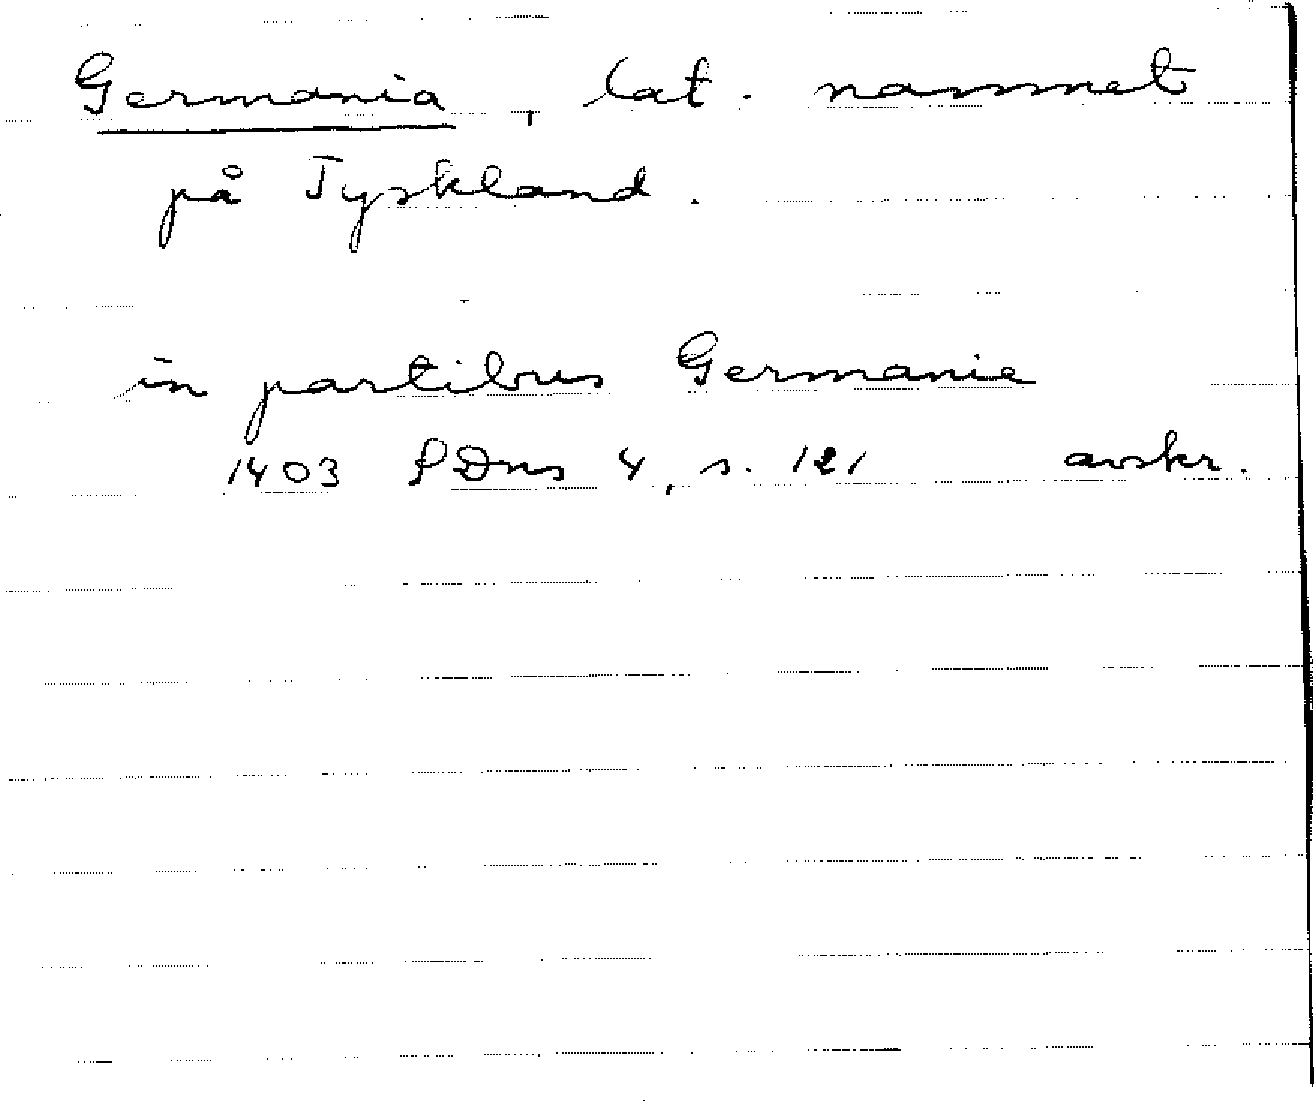 Germania, lat. namnet
på Tyskland.
in partibus Germanie
1403 SDns 4, s. 121 avskr.